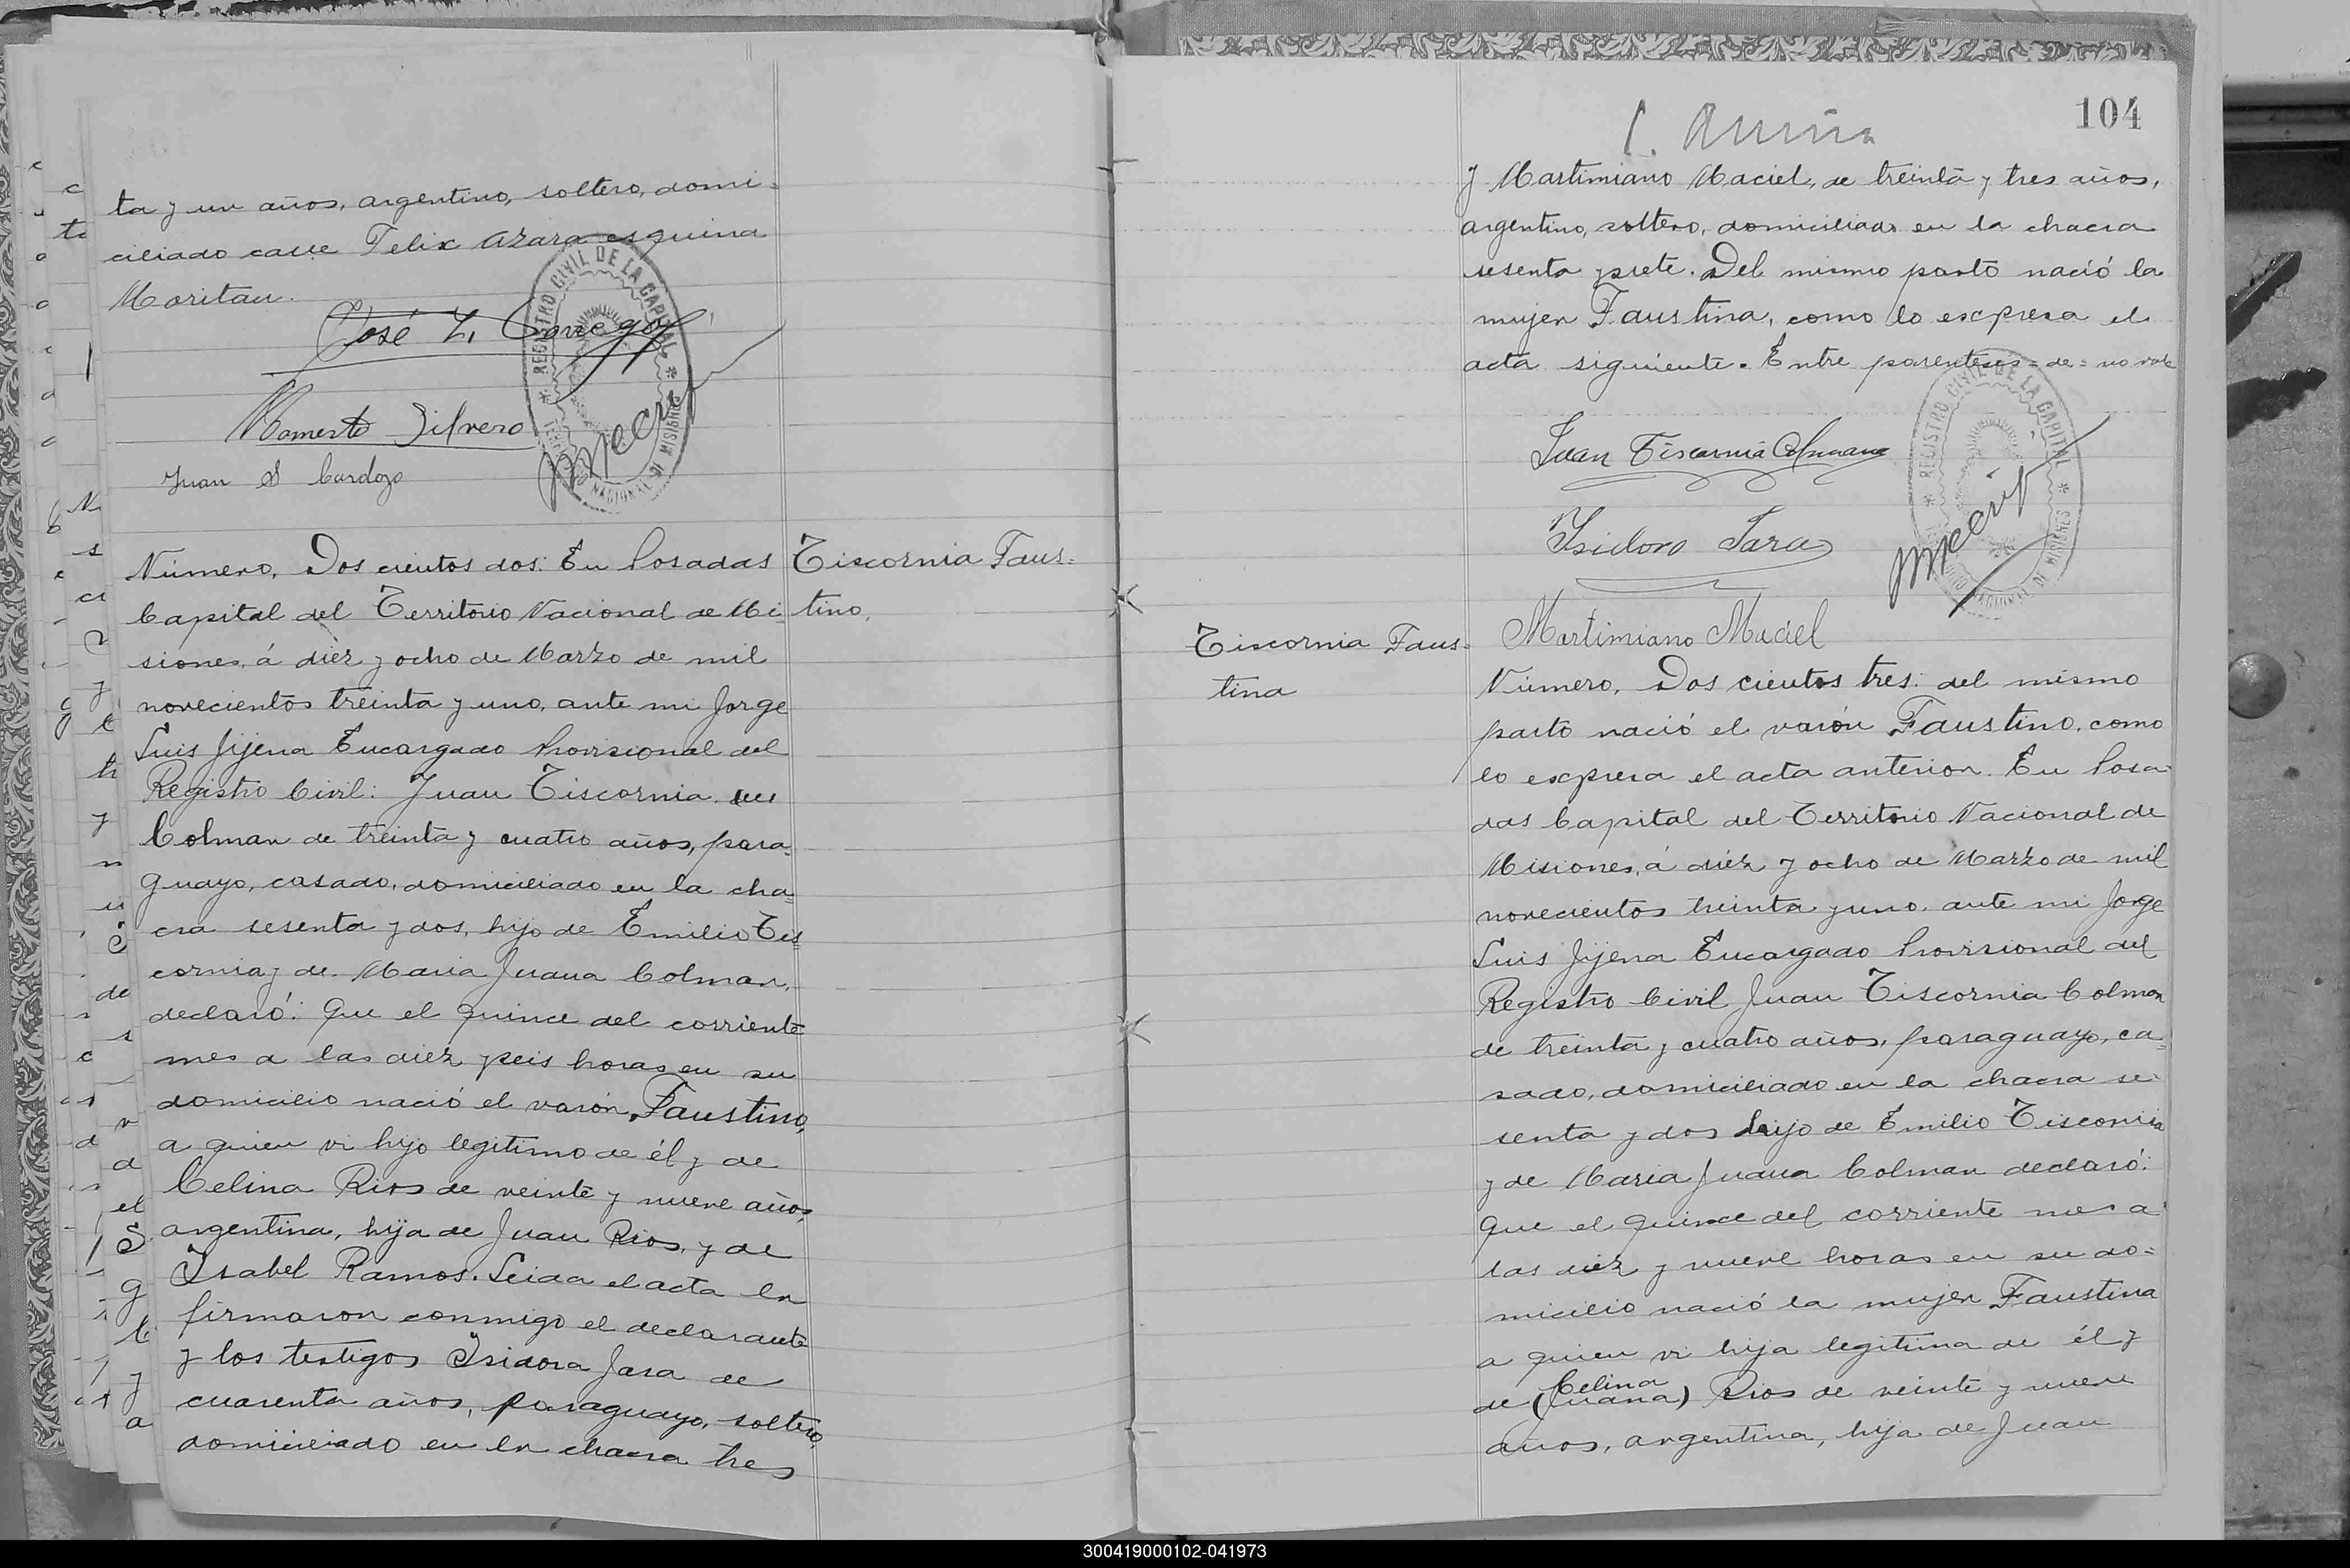 ta y un años, argentino, soltero, domi=
ciliado calle Felix Azara esquina
Moritan.
José L.
Juan S Cardozo
REGISTRO CIVIL DE LA CAPITAL
NACIONAL DE MISIONES
Número, Dos cientos dos: En Posadas
Capital del Territorio Nacional de Mi
siones, á diez y ocho de Marzo de mil
novecientos treinta y uno, ante mi Jorge
Luis Jijena Encargado Provisional del
Registro Civil: Juan Tiscornia
Colman de treinta y cuatro años, para=
guayo, casado, domiciliado en la cha=
cra sesenta y dos, hijo de Emilio Tis
cornia y de Maria Juana Colman,
declaró: Que el quince del corriente
mes a las diez y seis horas en su
domicilio nació el varón, Faustino,
a quien vi hijo legitimo de él y de
Celina Rios de veinte y nueve años,
argentina, hija de Juan Rios, y de
Isabel Ramos. Leida el acta la
firmaron conmigo el declarante
y los testigos Isidora Jara de
cuarenta años, paraguayo, soltero,
domiciliado en la chacra tres
Tiscornia Faus=
tino.
104
y Martimiano Maciel, de treinta y tres años,
argentino, soltero, domiciliado en la chacra
sesenta y siete. Del mismo parto nació la
mujer Faustina, como lo expresa el
acta siguiente. Entre parentesos = de = no vale
Juan Tiscornia Colmann
Isidoro Jara
REGISTRO CIVIL DE LA CAPITAL
NACIONAL DE MISIONES
Martimiano Maciel
Tiscornia Faus=
tina
Número, Dos cientos tres: del mismo
parto nació el varón Faustino, como
lo expresa el acta anterior. En Posa
das Capital del Territorio Nacional de
Misiones, á diez y ocho de Marzo de mil
novecientos treinta y uno, ante mi Jorge
Luis Jijena Encargado Provisional del
Registro Civil Juan Tiscornia Colman
de treinta y cuatro años, paraguayo, ca=
sado, domiciliado en la chacra se=
senta y dos hijo de Emilio Tiscornia
y de Maria Juana Colman declaró:
Que el quince del corriente mes a
las diez y nueve horas en su do=
micilio nació la mujer Faustina
a quien vi hija legitima de él y
Celina
de (Juana) Rios de veinte y nueve
años, argentina, hija de Juan
300419000102-041973